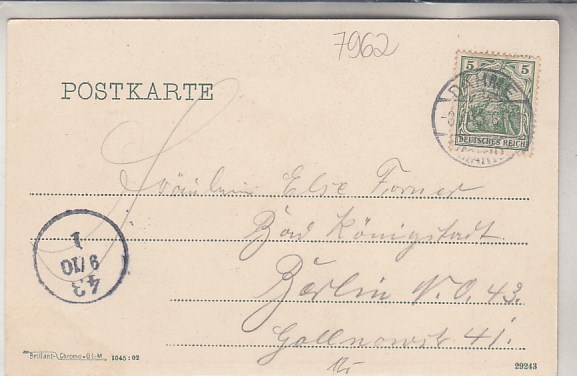 7962
5 5
DEUTSCHES REICH
DAHME
POSTKARTE
Fräulein Else Forner
Bad Königstadt
Berlin N.O. 43.
Gollnowstr 41.
43
9/10
1
Brillant-Chromo-D.L-M 1045:02
29243